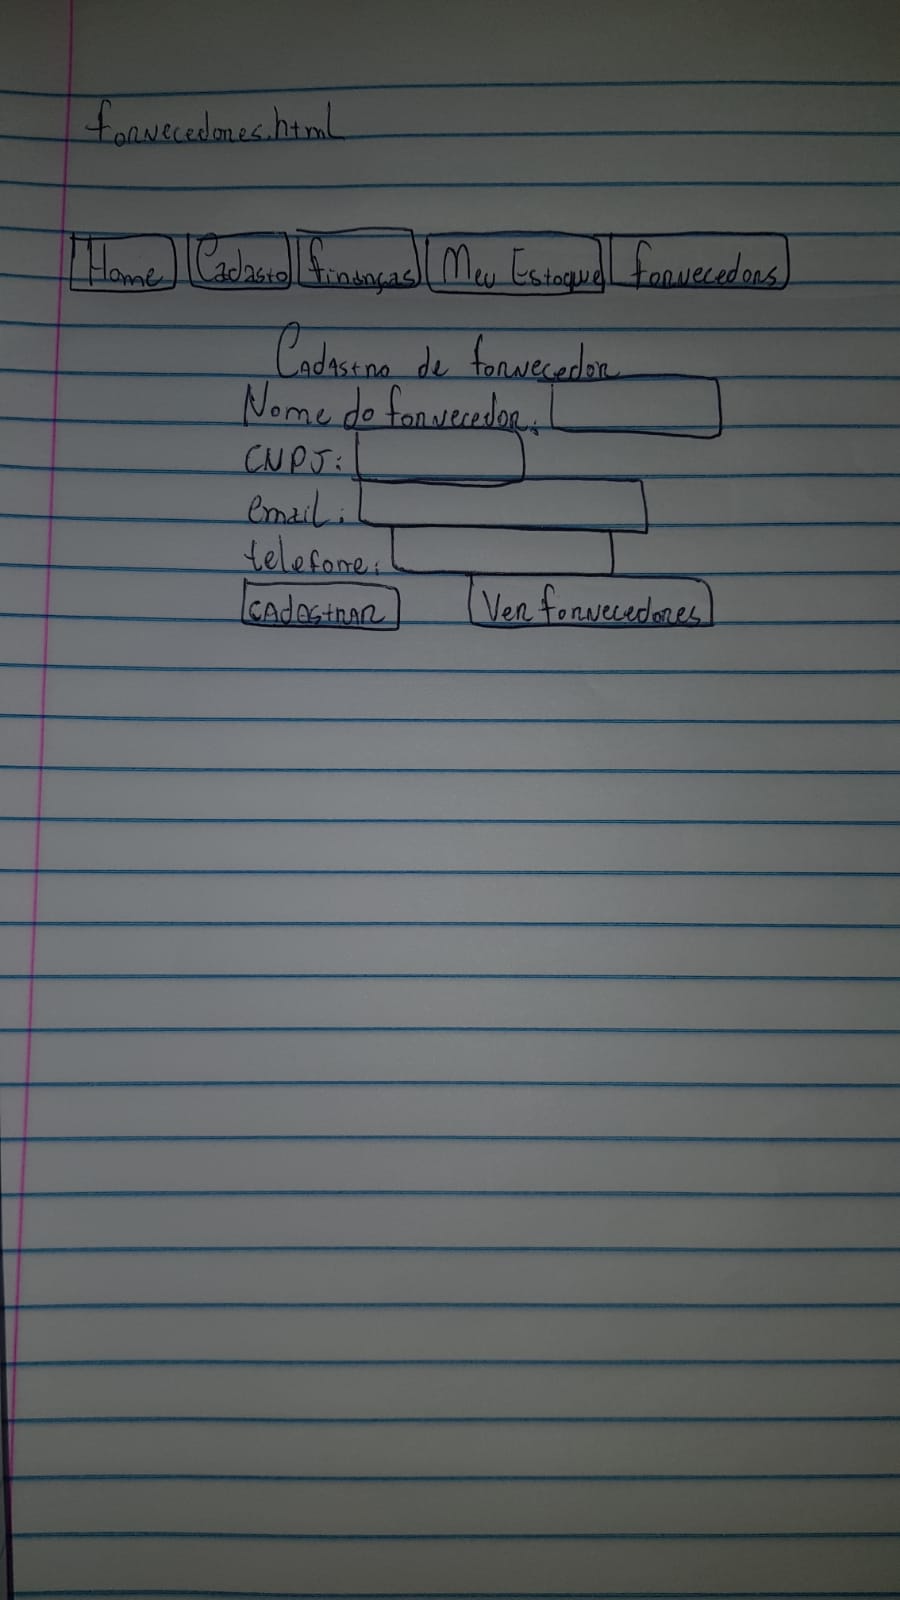 fornecedores.html
Home Cadasto finanças Meu Estoque fornecedors
Cadastro de fornecedor
Nome do fornecedor:
CNPJ:
email:
telefone:
CAdastrAR Ver fornecedores